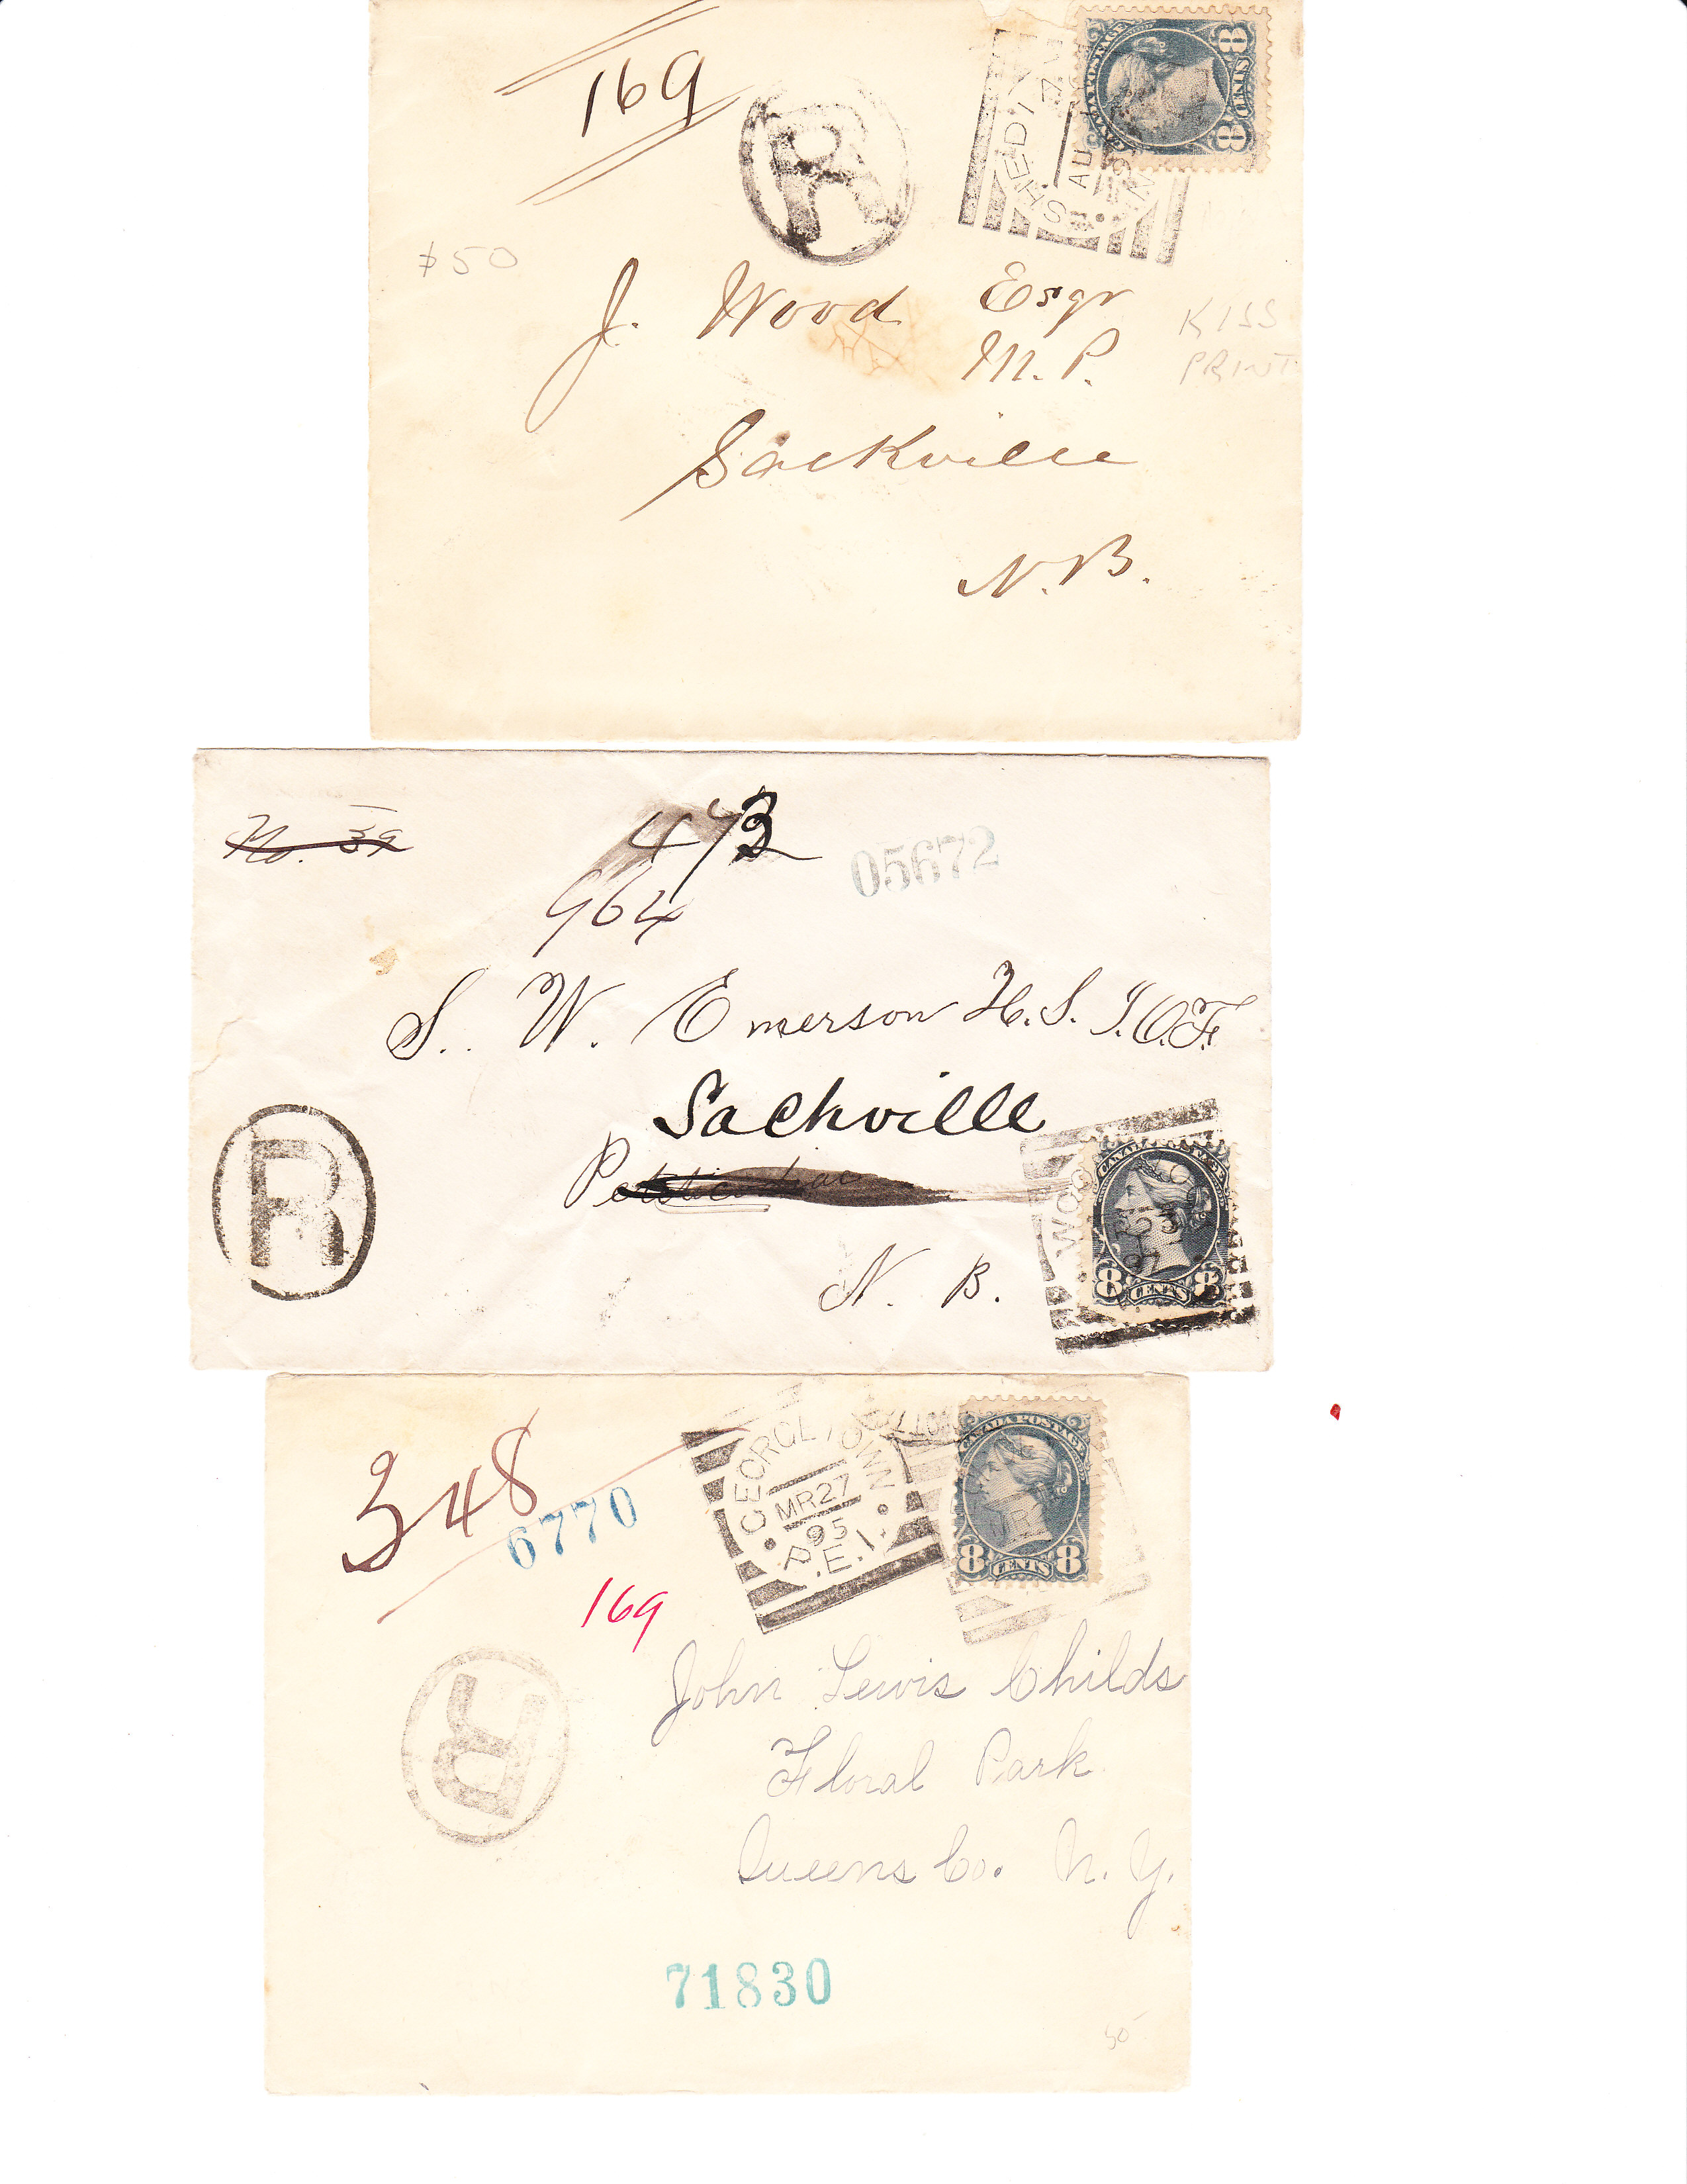 169
CANADA POSTAGE
8 CENTS 8
R
SHEDIA
AU
N
$50
J. Wood Esqr
M. P.
KISS
PRINT
Sackville
N. B.
No. 39
473
964
05672
S. W. Emerson H. S. I. O. F.
Sackville
Petitcodiac
N. B.
R
WOO
CANADA POSTAGE
8 CENTS 8
348
6770
169
GEORGETOWN
MR 27
95
P.E.I.
CANADA POSTAGE
8 CENTS 8
R
John Lewis Childs
Floral Park
Queens Co. N. Y.
71830
50